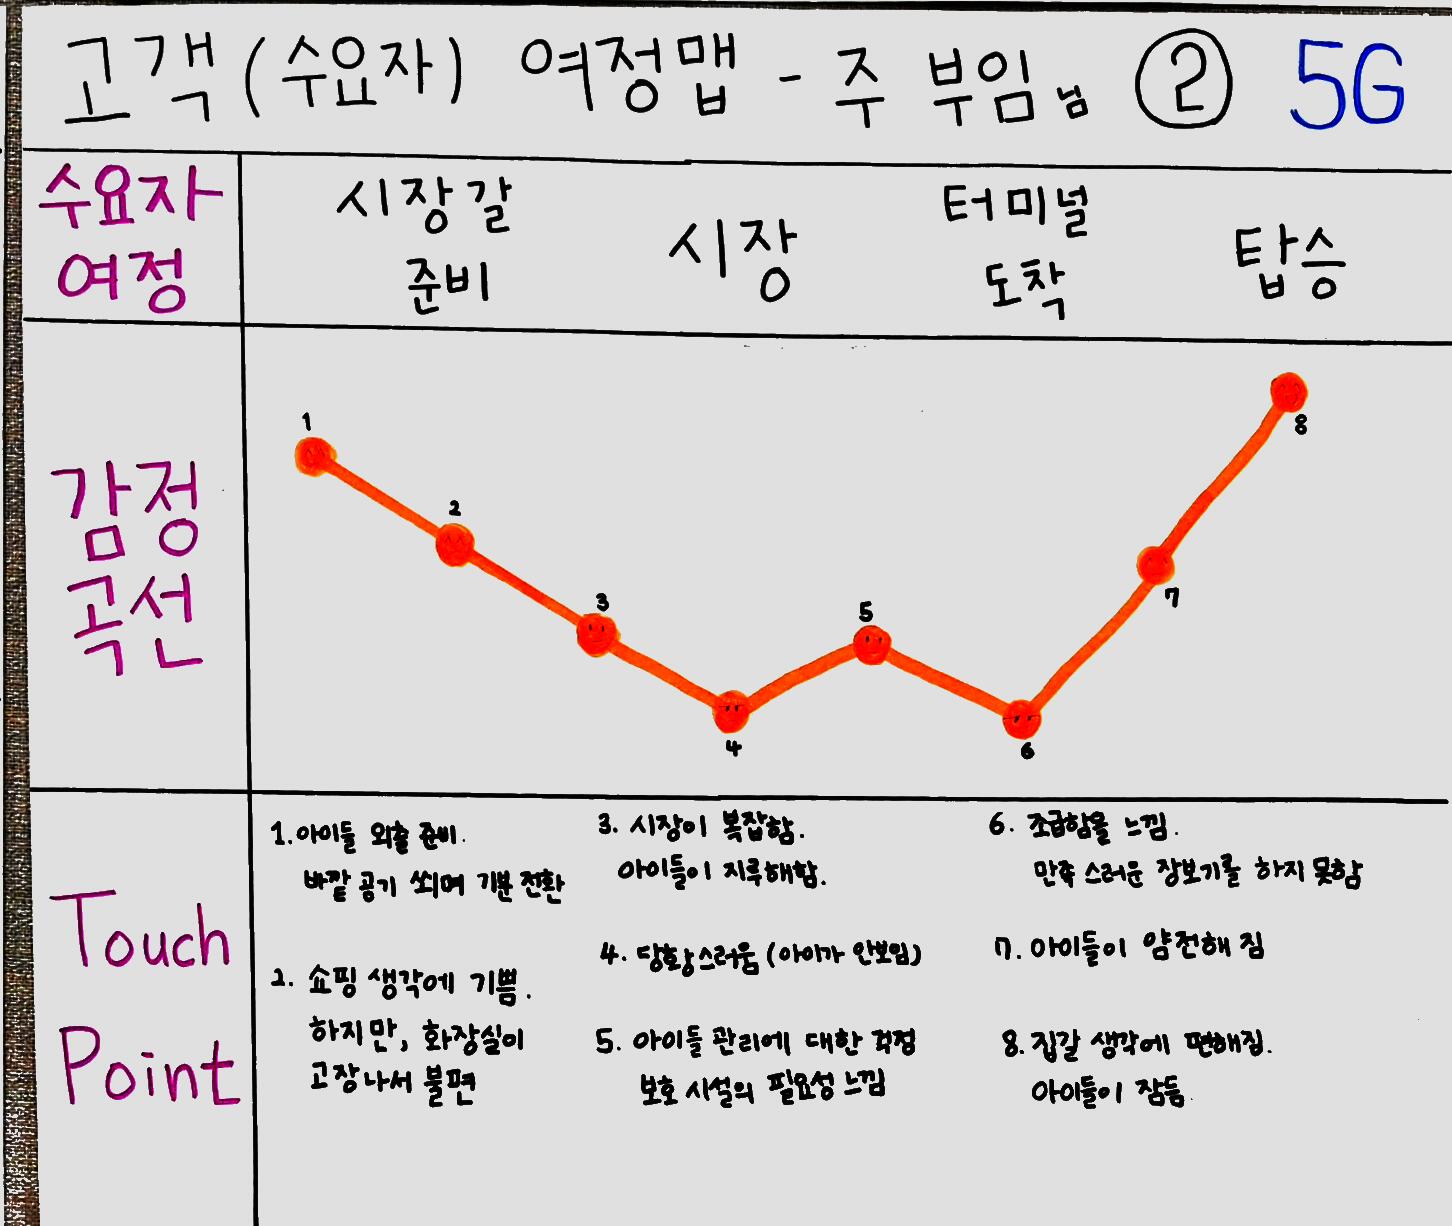 고객(수요자) 여정맵 - 주 부임님 ② 5G
수요자
여정
시장갈
준비
시장
터미널
도착
탑승
감정
곡선
1
2
3
4
5
6
7
8
Touch
Point
1. 아이들 외출 준비.
바깥 공기 쐬며 기분 전환
2. 쇼핑 생각에 기쁨.
하지만, 화장실이
고장나서 불편
3. 시장이 복잡함.
아이들이 지루해함.
4. 당황스러움 (아이가 안보임)
5. 아이들 관리에 대한 걱정
보호 시설의 필요성 느낌
6. 조급함을 느낌.
만족스러운 장보기를 하지 못함
7. 아이들이 얌전해 짐
8. 집갈 생각에 편해짐.
아이들이 잠듬.